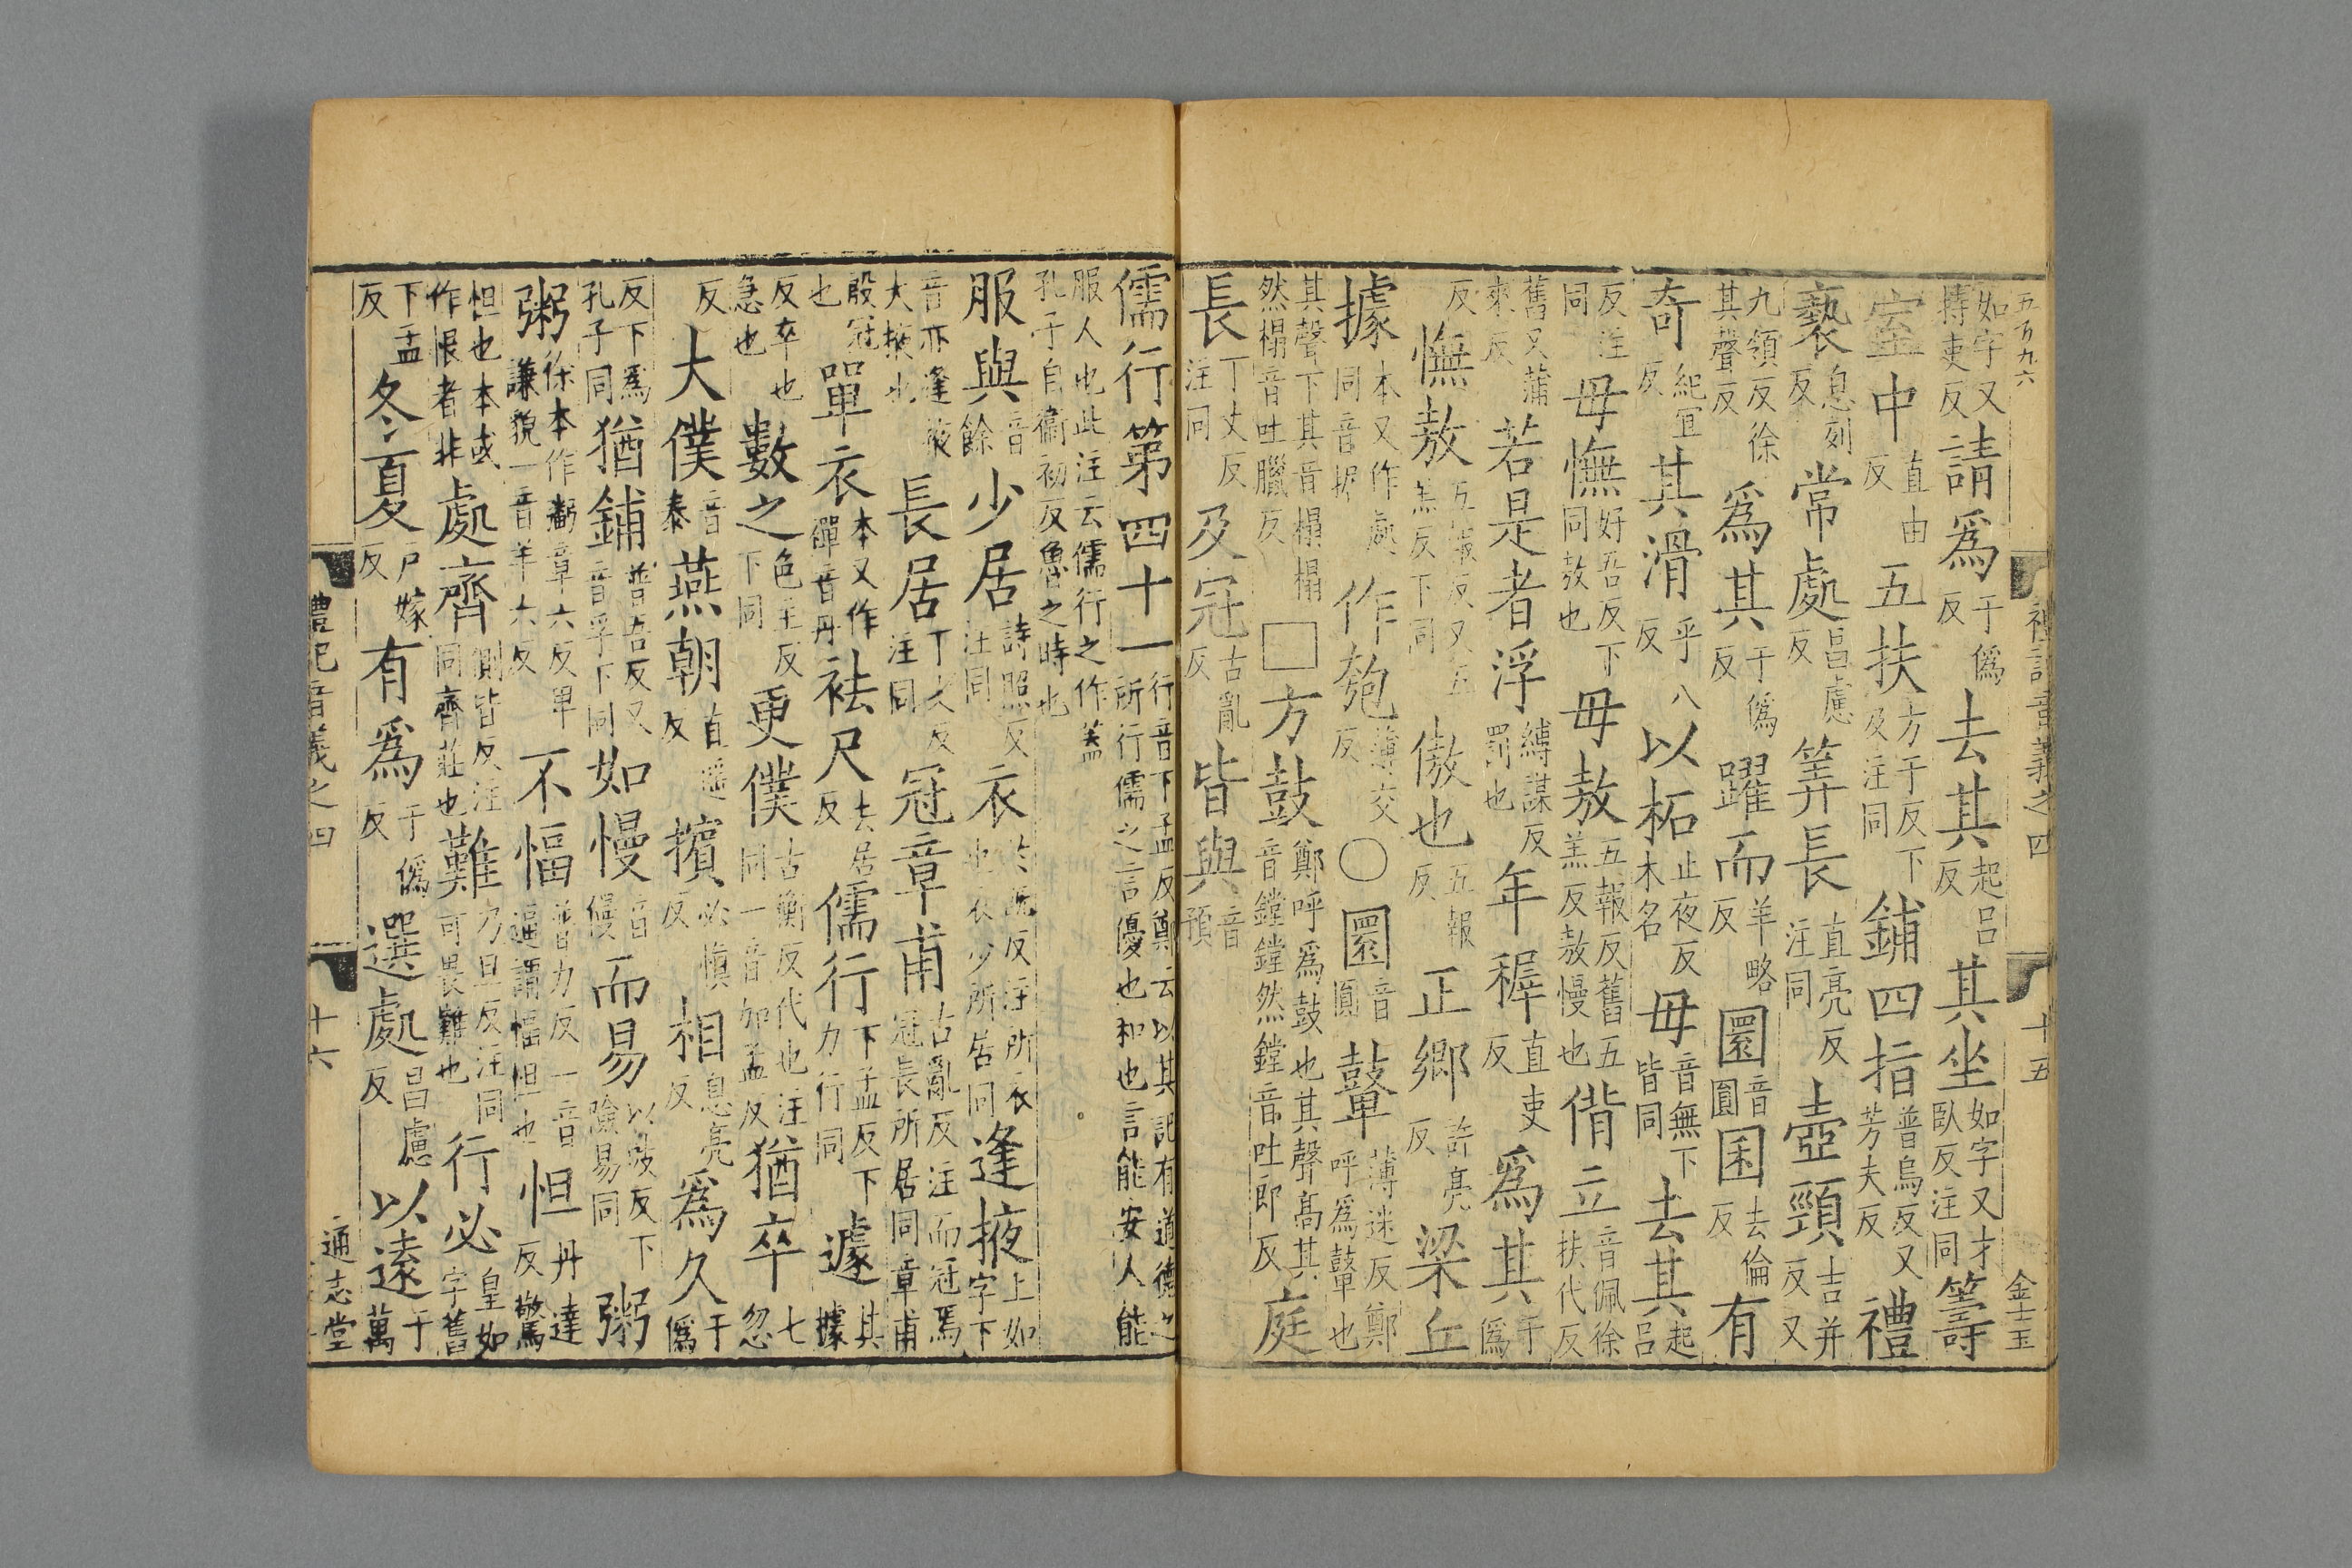 五百九六 禮記音義之四 十五 金士玉
如字又持吏反請爲于僞反去其起呂反其坐如字又才臥反注同籌
室中直由反五扶方于反下及注同鋪四指普烏反又芳夫反禮
褻息列反常處昌慮反筭長直亮反注同壺頸吉井反又
九領反徐其聲反爲其于僞反躍而羊略反圜音圓囷去倫反有
奇紀宜反其滑乎八反以柘止夜反木名毋音無下皆同去其起呂
反注同毋憮好吾反下同敖也毋敖五報反舊五羔反敖慢也偝立音佩徐扶代反
舊又蒲來反若是者浮縛謀反罰也年稺直吏反爲其于僞
反憮敖五報反又五羔反下同傲也五報反正鄉許亮反梁丘
據本又作處同音据作匏薄交反○圜音圓鼙薄迷反鄭呼爲鼙也
其聲下其音榻榻然榻音吐臘反□方鼓鄭呼爲鼓也其聲高其音鏜鏜然鏜音吐郎反庭
長丁丈反注同及冠古亂反皆與音預
儒行第四十一行音下孟反鄭云以其記有道德之所行儒之言優也和也言能安人能
服人也此注云儒行之作蓋孔子自衞初反魯之時也
服與音餘少居詩照反注同衣於旣反注所衣也衣少所居同逢掖上如字下
音亦逢掖大掖也長居丁丈反注同冠章甫古亂反注而冠焉冠長所居同章甫
殷冠也單衣本又作襌音丹袪尺去居反儒行下孟反下力行同遽其據
反卒也急也數之色主反下同更僕古衡反代也注同一音加孟反猶卒七忽
反大僕音泰燕朝直遥反擯必慎反相息亮反爲久于僞
反下爲孔子同猶鋪普吾反又音孚下同如慢音僈而易以豉反下險易同粥
粥徐本作鬻章六反卑謙貌一音羊六反不愊普力反一音逼謂愊怛也怛丹達反驚
怛也本或作恨者非處齊側皆反注同齊莊也難乃旦反注同可畏難也行必皇如字舊
下孟反冬夏戶嫁反有爲于僞反選處昌慮反以遠于萬
禮記音義之四 十六 通志堂